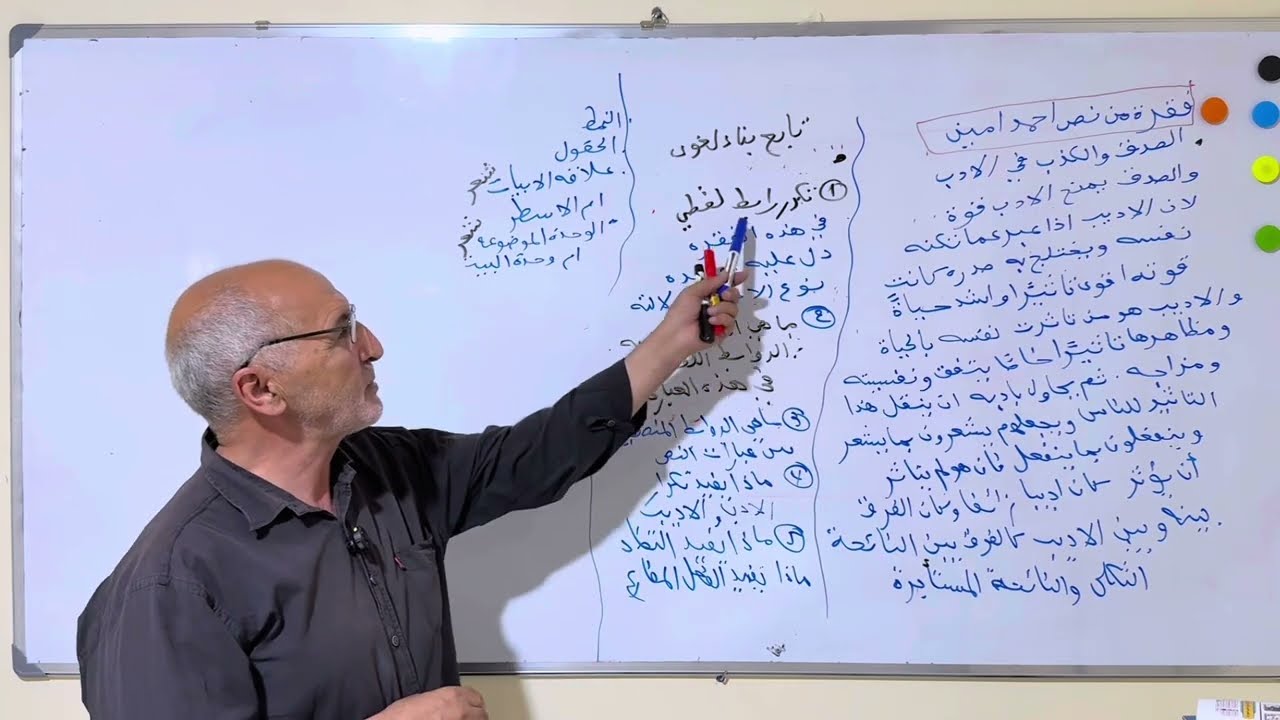 فقرة من نص احمد امين
الصدق والكذب في الادب
والصدق يمنح الادب قوة
لان الاديب اذا عبر عما تكنه
نفسه ويختلج به صدره كانت
قوته اقوى تاثيرًا واشد حياةً
والاديب هو من تاثرت نفسه بالحياة
ومظاهرها تاثيرًا خاصًا يتفق ونفسيته
ومزاجه. ثم يحاول بادبه ان ينقل هذا
التاثير للناس ويجعلهم يشعرون بما يشعر
وينفعلون بما ينفعل فان هو لم يتاثر
بينه وبين الاديب كالفرق بين النائحة
الثكلى والنائحة المستأجرة
تابع بناء لغوي
١ تكرر رابط لفظي
في هذه
دل عليه
نوع
٢ ما هي
الروابط
في هذه
٣ ماهي الروابط
بين عبارات النص
ماذا يفيد تكرار
الادب والاديب
ماذا يفيد التضاد
ماذا يفيد الفعل المضارع
النمط
الحقول
علاقه الابيات شعر
ام الاسطر
الوحدة الموضوعيه شعر
ام وحدة البيت